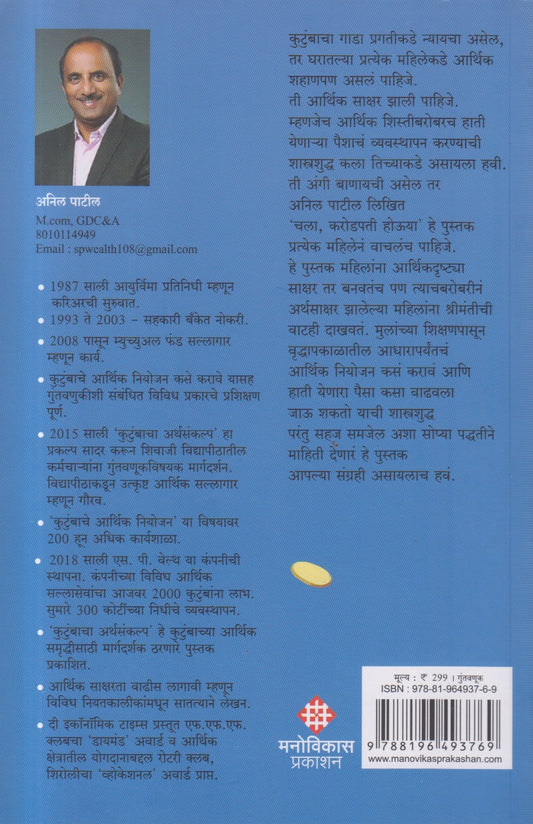 अनिल पाटील
M.com, GDC&A
8010114949
Email : spwealth108@gmail.com
• 1987 साली आयुर्विमा प्रतिनिधी म्हणून
करिअरची सुरुवात.
• 1993 ते 2003 - सहकारी बँकेत नोकरी.
• 2008 पासून म्युच्युअल फंड सल्लागार
म्हणून कार्य.
• कुटुंबाचे आर्थिक नियोजन कसे करावे यासह
गुंतवणुकीशी संबंधित विविध प्रकारचे प्रशिक्षण
पूर्ण.
• 2015 साली 'कुटुंबाचा अर्थसंकल्प' हा
प्रकल्प सादर करून शिवाजी विद्यापीठातील
कर्मचाऱ्यांना गुंतवणूकविषयक मार्गदर्शन.
विद्यापीठाकडून उत्कृष्ट आर्थिक सल्लागार
म्हणून गौरव.
• 'कुटुंबाचे आर्थिक नियोजन' या विषयावर
200 हून अधिक कार्यशाळा.
• 2018 साली एस. पी. वेल्थ या कंपनीची
स्थापना. कंपनीच्या विविध आर्थिक
सल्लासेवांचा आजवर 2000 कुटुंबांना लाभ.
सुमारे 300 कोटींच्या निधीचे व्यवस्थापन.
• 'कुटुंबाचा अर्थसंकल्प' हे कुटुंबाच्या आर्थिक
समृद्धीसाठी मार्गदर्शक ठरणारे पुस्तक
प्रकाशित.
• आर्थिक साक्षरता वाढीस लागावी म्हणून
विविध नियतकालीकांमधून सातत्याने लेखन.
• दी इकॉनॉमिक टाइम्स प्रस्तूत एफ.एफ.एफ.
क्लबचा 'डायमंड' अवार्ड व आर्थिक
क्षेत्रातील योगदानाबद्दल रोटरी क्लब,
शिरोलीचा 'व्होकेशनल' अवार्ड प्राप्त.
कुटुंबाचा गाडा प्रगतीकडे न्यायचा असेल,
तर घरातल्या प्रत्येक महिलेकडे आर्थिक
शहाणपण असलं पाहिजे.
ती आर्थिक साक्षर झाली पाहिजे.
म्हणजेच आर्थिक शिस्तीबरोबरच हाती
येणाऱ्या पैशाचं व्यवस्थापन करण्याची
शास्त्रशुद्ध कला तिच्याकडे असायला हवी.
ती अंगी बाणायची असेल तर
अनिल पाटील लिखित
'चला, करोडपती होऊया' हे पुस्तक
प्रत्येक महिलेनं वाचलंच पाहिजे.
हे पुस्तक महिलांना आर्थिकदृष्ट्या
साक्षर तर बनवतंच पण त्याचबरोबरीनं
अर्थसाक्षर झालेल्या महिलांना श्रीमंतीची
वाटही दाखवतं. मुलांच्या शिक्षणपासून
वृद्धापकाळातील आधारापर्यंतचं
आर्थिक नियोजन कसं करावं आणि
हाती येणारा पैसा कसा वाढवला
जाऊ शकतो याची शास्त्रशुद्ध
परंतु सहज समजेल अशा सोप्या पद्धतीने
माहिती देणारं हे पुस्तक
आपल्या संग्रही असायलाच हवं.
मनोविकास
प्रकाशन
मूल्य : ₹ 299 । गुंतवणूक
ISBN : 978-81-964937-6-9
9 788196 493769
www.manovikasprakashan.com